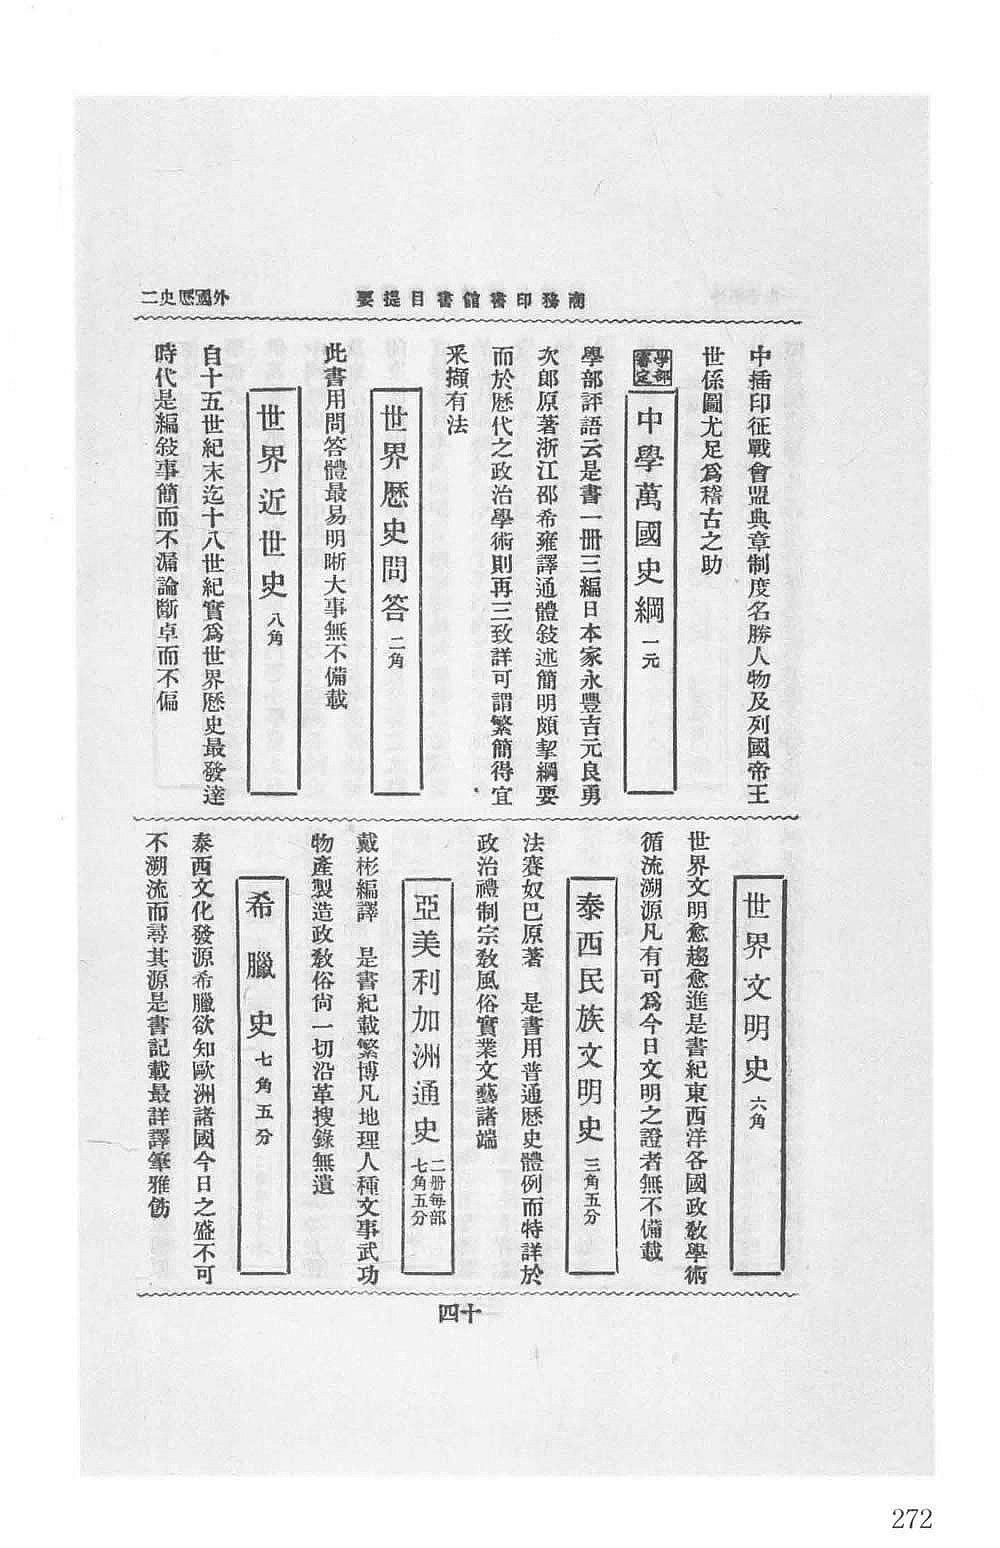 商務印書館書目提要
外國歷史二
中插印征戰會盟典章制度名勝人物及列國帝王
世係圖尤足爲稽古之助
學部審定
中學萬國史綱 一元
學部評語云是書一册三編日本家永豐吉元良勇
次郎原著浙江邵希雍譯通體敍述簡明頗挈綱要
而於歷代之政治學術則再三致詳可謂繁簡得宜
釆擷有法
世界歷史問答 二角
此書用問答體最易明晰大事無不備載
世界近世史 八角
自十五世紀末迄十八世紀實爲世界歷史最發達
時代是編敍事簡而不漏論斷卓而不偏
世界文明史 六角
世界文明愈趨愈進是書紀東西洋各國政敎學術
循流溯源凡有可爲今日文明之證者無不備載
泰西民族文明史 三角五分
法賽奴巴原著 是書用普通歷史體例而特詳於
政治禮制宗敎風俗實業文藝諸端
亞美利加洲通史 二册每部七角五分
戴彬編譯 是書紀載繁博凡地理人種文事武功
物產製造政敎俗尙一切沿革搜錄無遺
希臘史 七角五分
泰西文化發源希臘欲知歐洲諸國今日之盛不可
不溯流而尋其源是書記載最詳譯筆雅飭
十四
272